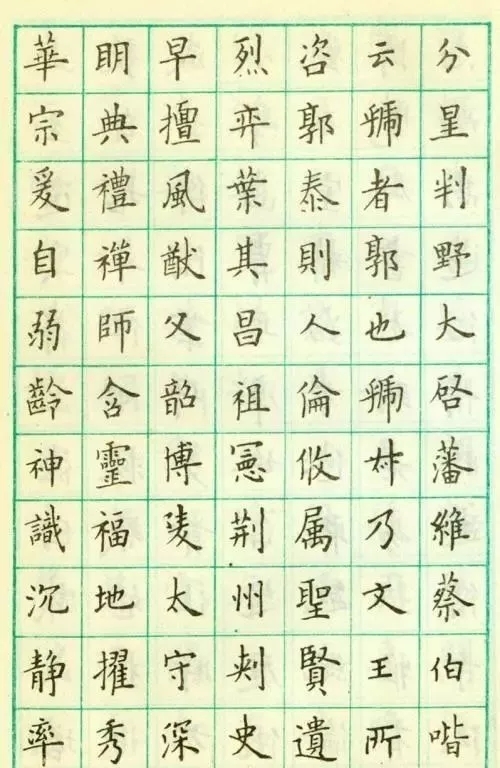 分星判野大啓藩維蔡伯喈
云虢者郭也虢叔乃文王所
咨郭泰則人倫攸属聖賢遺
烈弈葉其昌祖憲荆州刺史
早擅風猷父韶博陵太守深
明典禮禪師含靈福地擢秀
華宗爰自弱齡神識沉静率